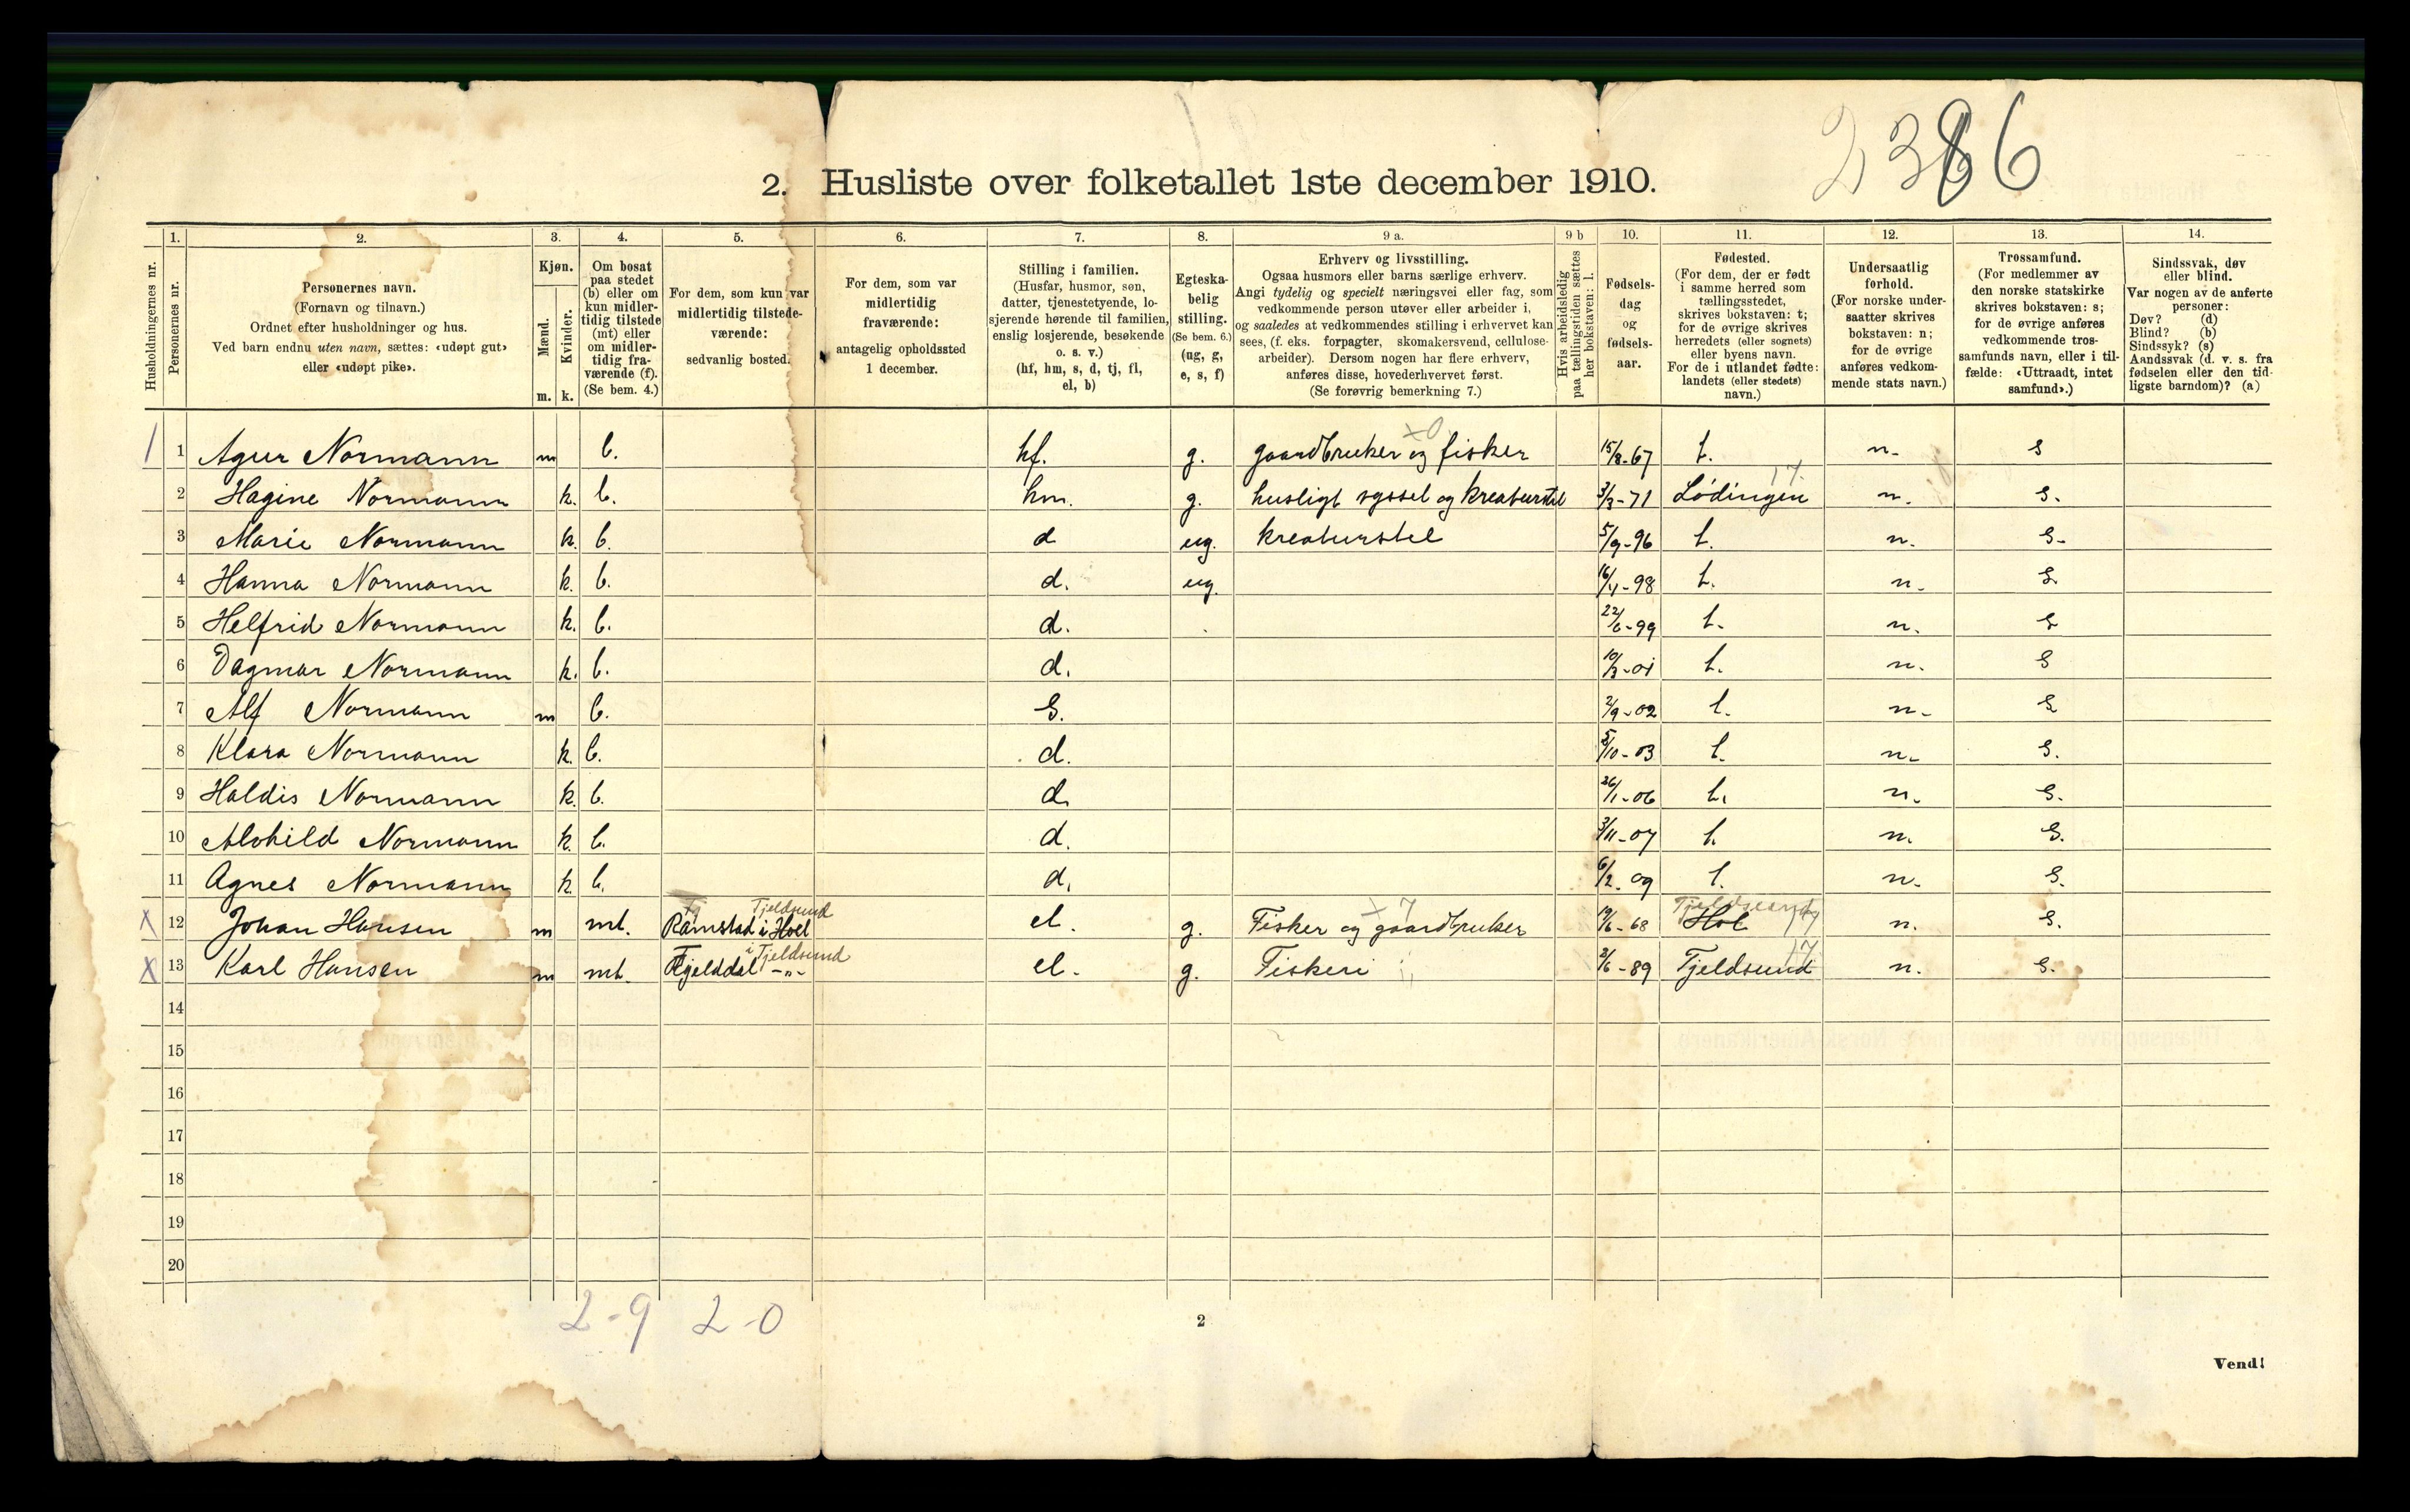 2386
2. Husliste over folketallet 1ste december 1910.
1. 2. 3. 4. 5. 6. 7. 8. 9 a. 9 b 10. 11. 12. 13. 14.
Husholdningernes nr.
Personernes nr.
Personernes navn.
(Fornavn og tilnavn.)
Ordnet efter husholdninger og hus.
Ved barn endnu uten navn, sættes: «udøpt gut»
eller «udøpt pike».
Kjøn.
Mænd.
Kvinder.
m. k.
Om bosat
paa stedet
(b) eller om
kun midler-
tidig tilstede
(mt) eller
om midler-
tidig fra-
værende (f).
(Se bem. 4.)
For dem, som kun var
midlertidig tilstede-
værende:
sedvanlig bosted.
For dem, som var
midlertidig
fraværende:
antagelig opholdssted
1 december.
Stilling i familien.
(Husfar, husmor, søn,
datter, tjenestetyende, lo-
sjerende hørende til familien,
enslig losjerende, besøkende
o. s. v.)
(hf, hm, s, d, tj, fl,
el, b)
Egteska-
belig
stilling.
(Se bem. 6.)
(ug, g,
e, s, f)
Erhverv og livsstilling.
Ogsaa husmors eller barns særlige erhverv.
Angi tydelig og specielt næringsvei eller fag, som
vedkommende person utøver eller arbeider i,
og saaledes at vedkommendes stilling i erhvervet kan
sees, (f. eks. forpagter, skomakersvend, cellulose-
arbeider). Dersom nogen har flere erhverv,
anføres disse, hovederhvervet først.
(Se forøvrig bemerkning 7.)
Hvis arbeidsledig
paa tællingstiden sættes
her bokstaven: l.
Fødsels-
dag
og
fødsels-
aar.
Fødested.
(For dem, der er født
i samme herred som
tællingsstedet,
skrives bokstaven: t;
for de øvrige skrives
herredets (eller sognets)
eller byens navn.
For de i utlandet fødte:
landets (eller stedets)
navn.)
Undersaatlig
forhold.
(For norske under-
saatter skrives
bokstaven: n;
for de øvrige
anføres vedkom-
mende stats navn.)
Trossamfund.
(For medlemmer av
den norske statskirke
skrives bokstaven: s;
for de øvrige anføres
vedkommende tros-
samfunds navn, eller i til-
fælde: «Uttraadt, intet
samfund».)
Sindssvak, døv
eller blind.
Var nogen av de anførte
personer:
Døv? (d)
Blind? (b)
Sindssyk? (s)
Aandssvak (d. v. s. fra
fødselen eller den tid-
ligste barndom)? (a)
x0
1 1 Agur Normann m b. hf. g. gaardbruker og fisker 15/8-67 t. n. s
17.
2 Hagine Normann k. b. hm. g. husligt syssel og kreaturstel 3/3-71 Lødingen n. s.
3 Marie Normann k. b. d ug. kreaturstel 5/9-96 t. n. s.
4 Hanna Normann k. b. d. ug. 16/4-98 t. n. s
5 Helfrid Normann k. b. d. 22/6-99 t. n. s
6 Dagmar Normann k. b. d. 10/3-01 t. n. s
7 Alf Normann m b. s. 2/9-02 t. n. s
8 Klara Normann k. b. d. 5/10-03 t. n. s.
9 Haldis Normann k. b. d. 26/1-06 t. n. s.
10 Alvhild Normann k. b. d. 3/11-07 t. n. s.
11 Agnes Normann k. b. d. 6/2-09 t. n. s.
Tjeldsund x7 Tjeldsund
X 12 Johan Hansen m mt. Ramstad i Hol el. g. Fisker og gaardbruker 19/6-68 Hol 17 n. s.
i Tjeldsund 17
X 13 Karl Hansen m mt. Fjelddal -„- el. g. Fiskeri 3/6-89 Tjeldsund n. s.
14
15
16
17
18
19
20
2-9 2-0
2
Vend!